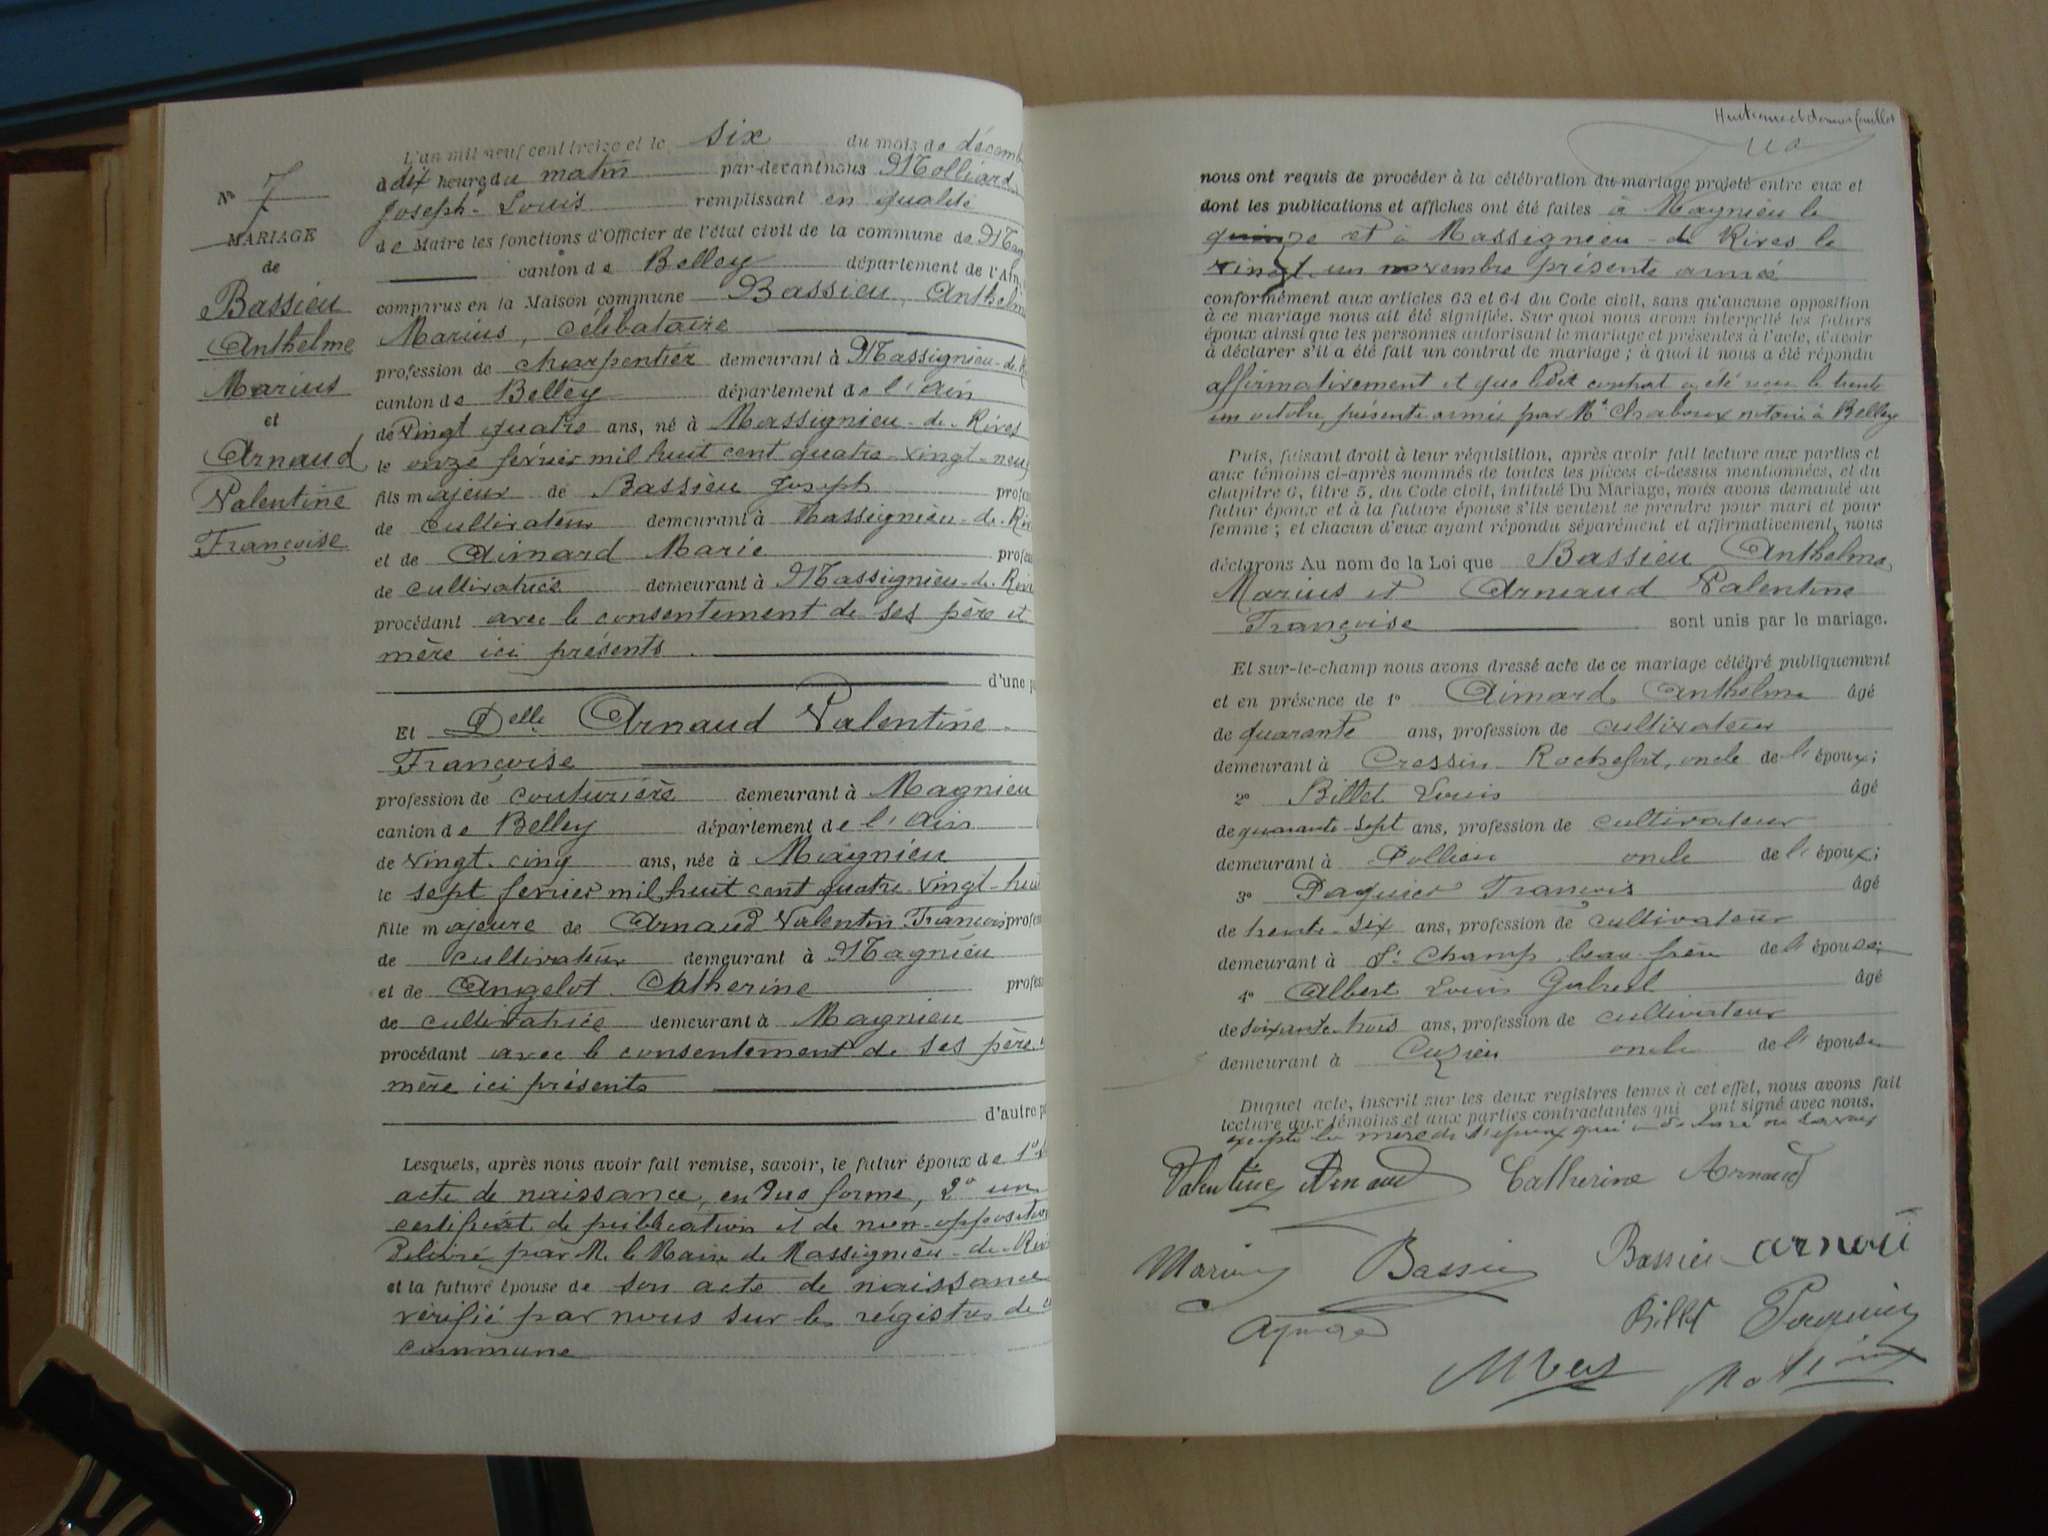 N° 7
MARIAGE
de
Bassieu
Anthelme
Marius
et
Arnaud
Valentine
Françoise
L'an mil neuf cent treize et le six du mois de décemb
à dix heures du matin par-devant nous Molliard
Joseph Louis remplissant en qualité
de Maire les fonctions d'Officier de l'état civil de la commune de Mag
canton de Belley département de l'Ain
comparus en la Maison commune Bassieu, Anthelm
Marius, célibataire
profession de charpentier demeurant à Massignieu-de-R
canton de Belley département de l'Ain
de Vingt quatre ans, né à Massignieu-de-Rives
le onze février mil huit cent quatre-vingt-neuf
fils majeur de Bassieu Joseph profes
de cultivateur demeurant à Massignieu-de-Riv
et de Aimard Marie profes
de cultivatrice demeurant à Massignieu-de-Rive
procédant avec le consentement de ses père et
mère ici présents.
d'une pa
Et Delle Arnaud Valentine
Françoise
profession de couturière demeurant à Magnieu
canton de Belley département de l'Ain
de vingt-cinq ans, née à Magnieu
le sept février mil huit cent quatre-vingt-huit
fille majeure de Arnaud Valentin François profes
de cultivateur demeurant à Magnieu
et de Angelot Catherine profes
de cultivatrice demeurant à Magnieu
procédant avec le consentement de ses père
mère ici présents
d'autre pa
Lesquels, après nous avoir fait remise, savoir, le futur époux de 1°
acte de naissance, en due forme, 2° un
certificat de publication et de non-opposition
délivré par M. le Maire de Massignieu-de-Riv
et la future épouse de son acte de naissance
vérifié par nous sur les régistres de
commune
nous ont requis de procéder à la célébration du mariage projeté entre eux et
dont les publications et affiches ont été faites à Magnieu le
quinze et à Massignieu-de Rives le
vingt un novembre présente année
conformément aux articles 63 et 64 du Code civil, sans qu'aucune opposition
à ce mariage nous ait été signifiée. Sur quoi nous avons interpellé les futurs
époux ainsi que les personnes autorisant le mariage et présentes à l'acte, d'avoir
à déclarer s'il a été fait un contrat de mariage ; à quoi il nous a été répondu
affirmativement et que ledit contrat a été reçu le trente
un octobre, présente année par Me Chaboux notaire à Belley
Puis, faisant droit à leur réquisition, après avoir fait lecture aux parties et
aux témoins ci-après nommés de toutes les pièces ci-dessus mentionnées, et du
chapitre 6, titre 5, du Code civil, intitulé Du Mariage, nous avons demandé au
futur époux et à la future épouse s'ils veulent se prendre pour mari et pour
femme ; et chacun d'eux ayant répondu séparément et affirmativement, nous
déclarons Au nom de la Loi que Bassieu Anthelme,
Marius et Arnaud Valentine
Françoise sont unis par le mariage.
Et sur-le-champ nous avons dressé acte de ce mariage célébré publiquement
et en présence de 1° Aimard Anthelme âgé
de quarante ans, profession de cultivateur
demeurant à Cressin Rochefort, oncle de l'époux;
2° Billet Louis âgé
de quarante-sept ans, profession de cultivateur
demeurant à Pollieu oncle de l'époux;
3° Paquier François âgé
de trente-six ans, profession de cultivateur
demeurant à St Champ, beau-frère de l'épouse;
4° Albert Louis Gabriel âgé
de soixante-trois ans, profession de cultivateur
demeurant à Cuzieu oncle de l'épouse
Duquel acte, inscrit sur les deux registres tenus à cet effet, nous avons fait
lecture aux témoins et aux parties contractantes qui ont signé avec nous,
excepté la mère de l'époux qui a déclaré ne savoir
Valentine Arnaud Catherine Arnaud
Marius Bassieu Bassieu arnaud
Billet Paquier